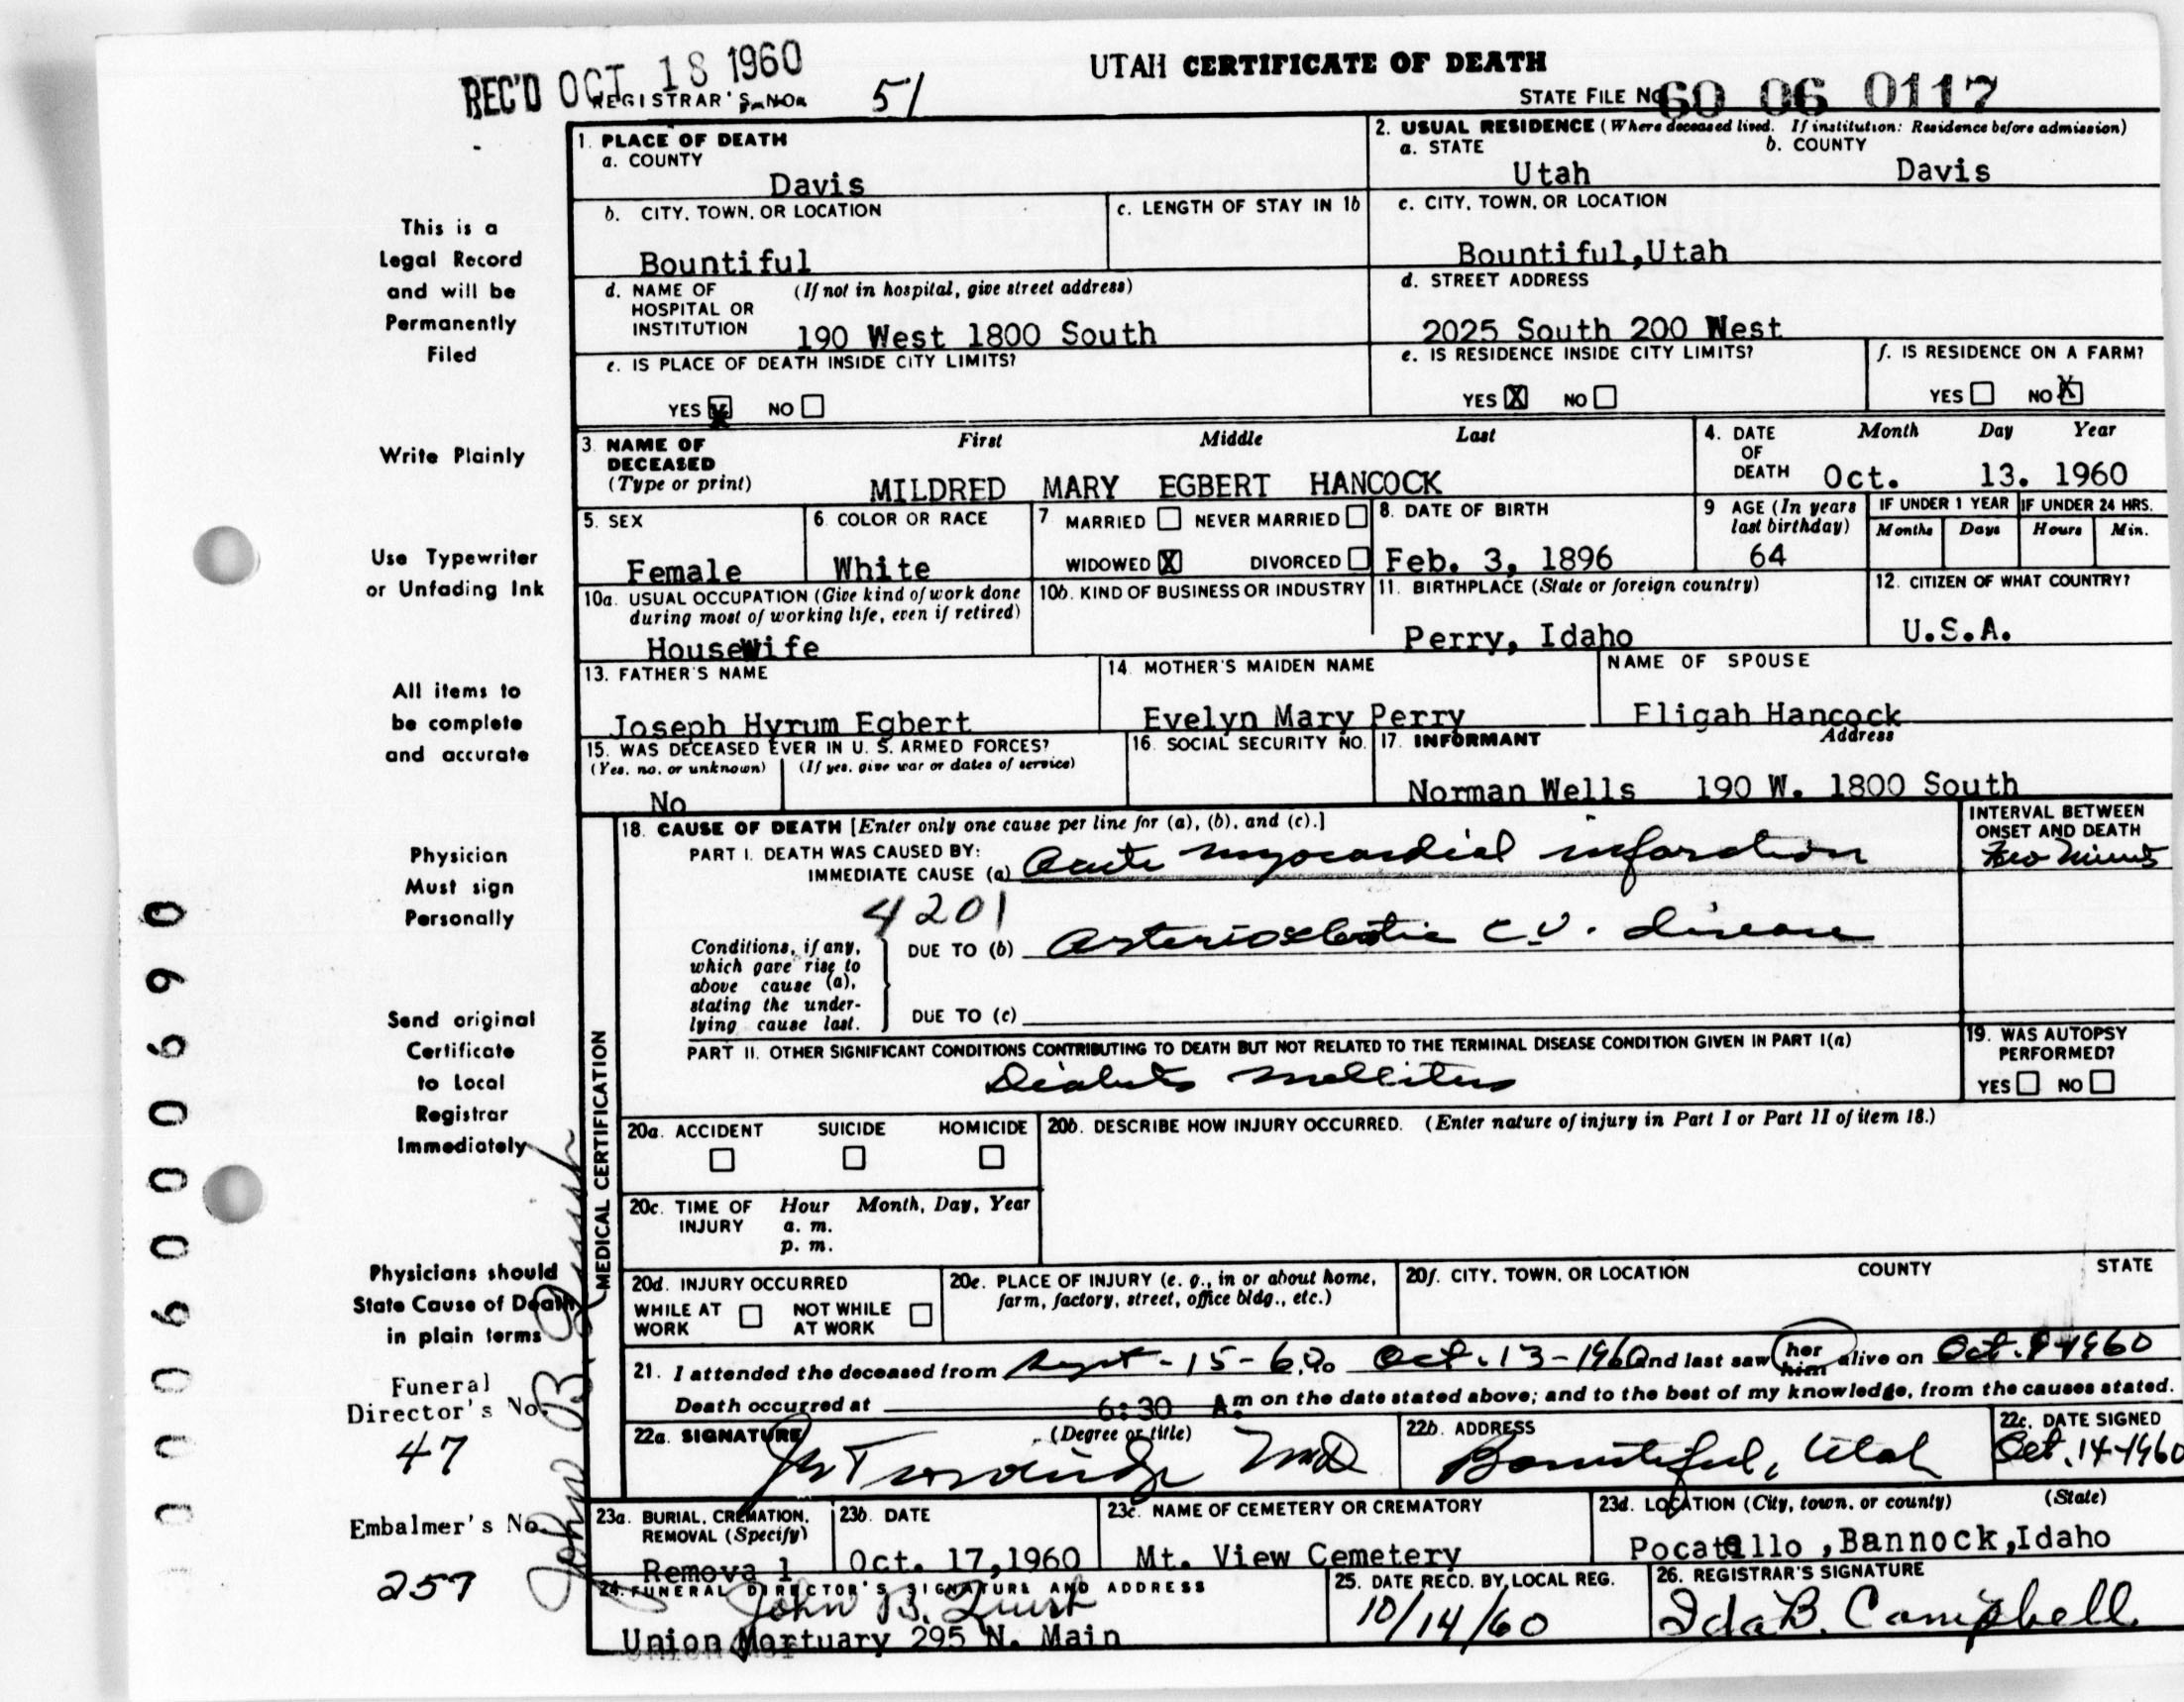 REC'D OCT 18 1960
REGISTRAR'S NO. 51
UTAH CERTIFICATE OF DEATH
STATE FILE NO. 60 06 0117
This is a
Legal Record
and will be
Permanently
Filed
Write Plainly
Use Typewriter
or Unfading Ink
All items to
be complete
and accurate
Physician
Must sign
Personally
Send original
Certificate
to Local
Registrar
Immediately
Physicians should
State Cause of Death
in plain terms
Funeral
Director's No.
47
Embalmer's No.
257
0 0 0 6 0 0 0 6 9 0
John B.
1. PLACE OF DEATH
a. COUNTY
Davis
2. USUAL RESIDENCE (Where deceased lived. If institution: Residence before admission)
a. STATE b. COUNTY
Utah Davis
b. CITY, TOWN, OR LOCATION
Bountiful
c. LENGTH OF STAY IN 1b
c. CITY, TOWN, OR LOCATION
Bountiful,Utah
d. NAME OF (If not in hospital, give street address)
HOSPITAL OR
INSTITUTION 190 West 1800 South
d. STREET ADDRESS
2025 South 200 West
e. IS PLACE OF DEATH INSIDE CITY LIMITS?
YES X NO
e. IS RESIDENCE INSIDE CITY LIMITS?
YES X NO
f. IS RESIDENCE ON A FARM?
YES NO X
3. NAME OF First Middle Last
DECEASED
(Type or print) MILDRED MARY EGBERT HANCOCK
4. DATE Month Day Year
OF
DEATH Oct. 13. 1960
5. SEX
Female
6. COLOR OR RACE
White
7 MARRIED NEVER MARRIED
WIDOWED X DIVORCED
8. DATE OF BIRTH
Feb. 3, 1896
9 AGE (In years
last birthday)
64
IF UNDER 1 YEAR IF UNDER 24 HRS.
Months Days Hours Min.
10a. USUAL OCCUPATION (Give kind of work done
during most of working life, even if retired)
Housewife
10b. KIND OF BUSINESS OR INDUSTRY
11. BIRTHPLACE (State or foreign country)
Perry, Idaho
12. CITIZEN OF WHAT COUNTRY?
U.S.A.
13. FATHER'S NAME
Joseph Hyrum Egbert
14. MOTHER'S MAIDEN NAME
Evelyn Mary Perry
NAME OF SPOUSE
Eligah Hancock
15. WAS DECEASED EVER IN U. S. ARMED FORCES?
(Yes, no, or unknown) (If yes, give war or dates of service)
No
16. SOCIAL SECURITY NO.
17. INFORMANT Address
Norman Wells 190 W. 1800 South
MEDICAL CERTIFICATION
18. CAUSE OF DEATH [Enter only one cause per line for (a), (b), and (c).]
PART I. DEATH WAS CAUSED BY:
IMMEDIATE CAUSE (a) Acute myocardial infarction
INTERVAL BETWEEN
ONSET AND DEATH
Few
4201
Conditions, if any,
which gave rise to
above cause (a),
stating the under-
lying cause last.
DUE TO (b) Arteriosclerotic C.V. disease
DUE TO (c)
PART II. OTHER SIGNIFICANT CONDITIONS CONTRIBUTING TO DEATH BUT NOT RELATED TO THE TERMINAL DISEASE CONDITION GIVEN IN PART I(a)
Diabetes mellitus
19. WAS AUTOPSY
PERFORMED?
YES NO
20a. ACCIDENT SUICIDE HOMICIDE
20b. DESCRIBE HOW INJURY OCCURRED. (Enter nature of injury in Part I or Part II of item 18.)
20c. TIME OF Hour Month, Day, Year
INJURY a. m.
p. m.
20d. INJURY OCCURRED
WHILE AT NOT WHILE
WORK AT WORK
20e. PLACE OF INJURY (e. g., in or about home,
farm, factory, street, office bldg., etc.)
20f. CITY, TOWN, OR LOCATION COUNTY STATE
21. I attended the deceased from Sept-15-60 to Oct.13-1960 and last saw her him alive on Oct. 1960
Death occurred at 6:30 A.m on the date stated above; and to the best of my knowledge, from the causes stated.
22a. SIGNATURE (Degree or title)
MD
22b. ADDRESS
Bountiful, Utah
22c. DATE SIGNED
Oct. 14-1960
23a. BURIAL, CREMATION,
REMOVAL (Specify)
Remova l
23b. DATE
Oct. 17,1960
23c. NAME OF CEMETERY OR CREMATORY
Mt. View Cemetery
23d. LOCATION (City, town, or county) (State)
Pocatello ,Bannock,Idaho
24. FUNERAL DIRECTOR'S SIGNATURE AND ADDRESS
John B.
Union Mortuary 295 N. Main
25. DATE RECD. BY LOCAL REG.
10/14/60
26. REGISTRAR'S SIGNATURE
Ida B. Campbell